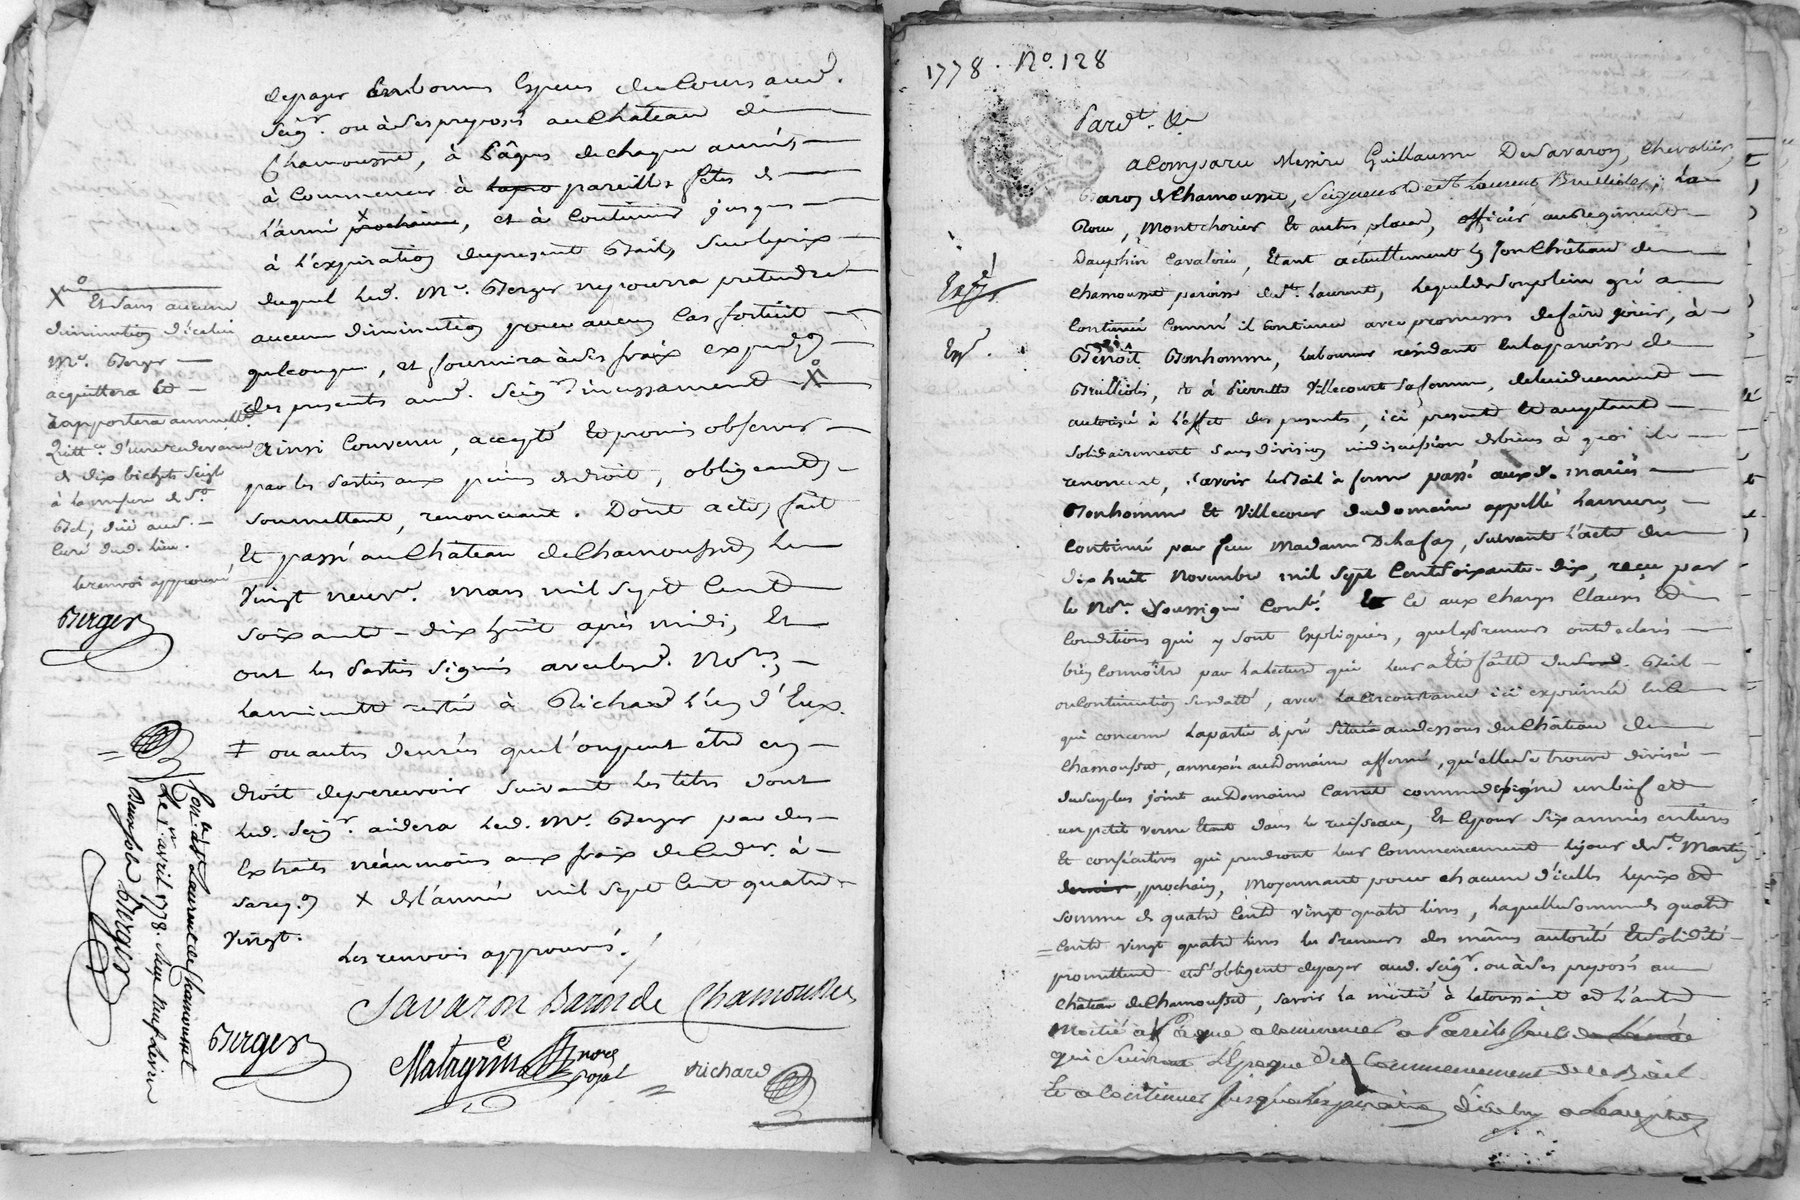 depayer en bonnes Espèces de Cours aud.
Seigr. ou à Ses preposés au Château de
Chamousset, à Pâques de chaque année,
à Commencer à pareilles fêtes de
l'année prochaine, et à Continuer jusques
à l'expiration du present Bail, Sur le prix
duquel led. Me. Berger ne pourra pretendre
aucune diminution pour aucun Cas fortuit
quelconque, et fournira à Ses fraix expedon.
des presentes aud. Seigr. incessamment X
Ainsi Convenu, accepté Et promis observer
par les Parties aux peines de droit, obligeant,
Soumettant, renonciant. Dont acte, fait
Et passé au Château de Chamousset, Le
Vingt neuf. mars mil Sept Cent
Soixante-dix huit après midi, Et
ont les Parties Signé avec lesd. Nores.,
La minutte restée à Richard l'un d'Eux.
ou autres denrées qu'il ont peut être en
droit de percevoir Suivant les titres dont
led. Seigr. aidera led. Me. Berger par des
Extraits néanmoins aux fraix de ce der. à
X de l'année mil Sept Cent quatre
Vingt.
Les renvois approuvés
Savaron Baron de Chamousset
Berger
Matagrin nore royal
Richard
X Et Sans aucune
diminution d'icelui
Me. Berger
acquittera Et
rapportera annuellt.
Quittce. d'une redevance
de dix bichets Seigle
à la mesure de St.
Bel, due aud.
Curé dud. lieu.
le renvoi approuvé
Berger
Con. à St Laurent de Chamousset
Le 1er avril 1778. Reçu neuf livres
Berger
1778. No. 128
Pardt. &a
a Comparu Messire Guillaume De Savaron, Chevalier,
Baron de Chamousset, Seigneur de St Laurent Brullioles, La
Roue, Montchorier Et autres places, officier au regiment
Dauphin Cavalerie, Etant actuellement en Son Château de
Chamousset paroisse de St. Laurent, Lequel de Son plein gré a
Continué Comme il Continue avec promesses de faire jouir, à
Expé.
Exp.
Benoit Bonhomme, Laboureur résidant En la paroisse de
Brullioles, Et à Pierrette Villecourt Sa femme, de lui duement
autorisé à l'effet des presentes, ici presents Et acceptants
Solidairement Sans division ni discussion de biens à quoi ils
renoncent, Savoir Le Bail à ferme passé auxd. mariés
Bonhomme Et Villecour du Domaine appellé Lamure,
Continué par feue Madame Dehafay, Suivant l'acte du
dix huit Novembre mil Sept Cent Soixante-dix, reçu par
le Nore. Soussigné Contr. Et Ce aux Charges Clauses Et
Conditions qui y Sont Expliquées, que les Preneurs ont declaré
bien Connoître par la Lecture qui leur a Eté faitte dud. Bail
ou Continuation Susdatté, avec la circonstance ici exprimée En ce
qui concerne La partie de pré Située au dessous du Château de
Chamousset, annexée au Domaine affermé, qu'elle Se trouve divisée
du Surplus joint au Domaine Carret comme désigné un bief et
un petit verne Etant dans le ruisseau, Et Ce pour Six années entières
Et consécutives qui prendront leur Commencement le jour de St. Martin
prochain, Moyennant pour chacune d'icelles le prix et
Somme de quatre Cent vingt quatre livres, Laquelle Somme de quatre
Cent vingt quatre livres les Preneurs des mêmes autorité Et Solidité
promettent et S'obligent de payer aud. Seigr. ou à Ses preposés au
Château de Chamousset, Savoir la moitié à la toussaint et l'autre
Moitié a Pâque a commencer a Pareils Jours
qui Suivront l'Epoque du Commencement de ce Bail
Et a Continuer Jusqu'a l'expiration d'icelui